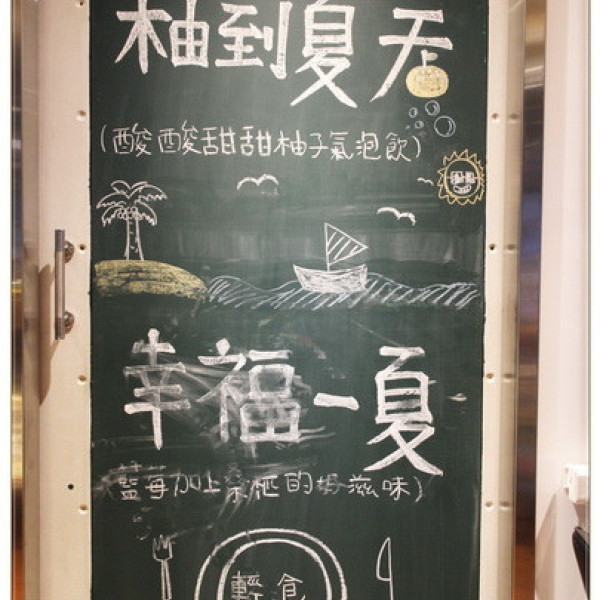 柚到夏天
(酸酸甜甜柚子氣泡飲)
幸福一夏
(藍莓加上桑椹的好滋味)
輕食